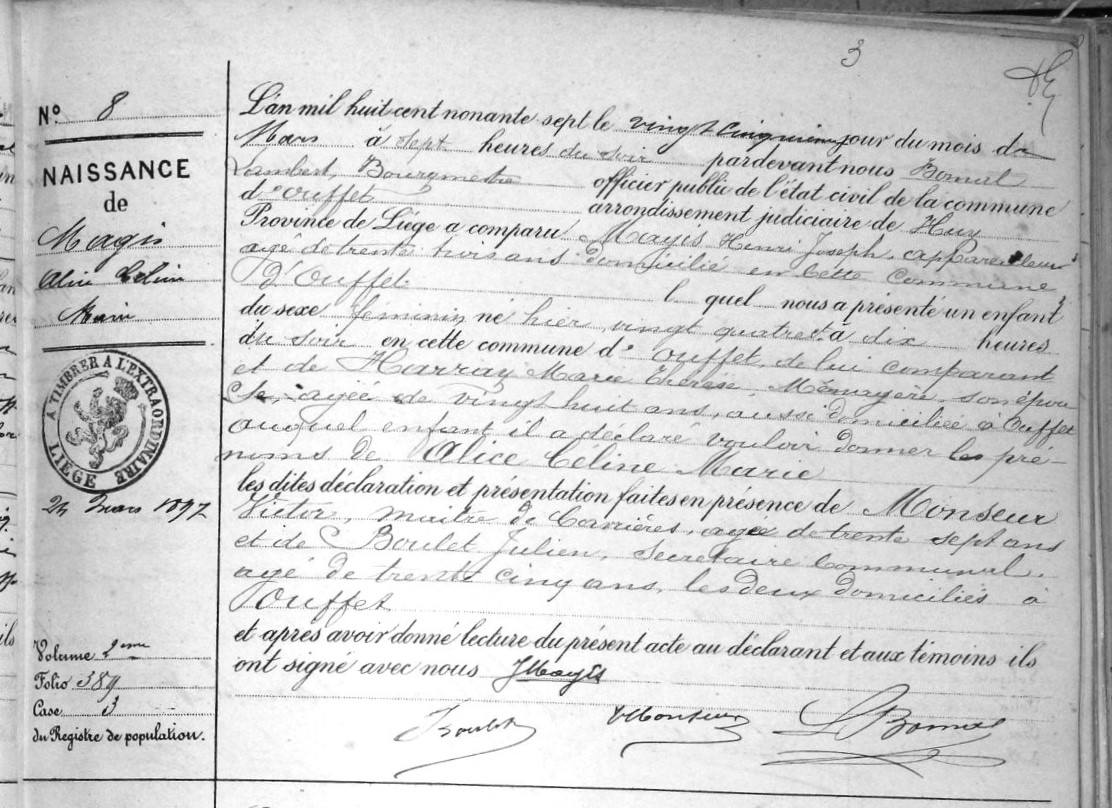 3
N° 8
NAISSANCE
de
Magis
Alice Céline
Marie
A TIMBRER A L'EXTRAORDINAIRE
LIÉGE
24 mars 1897
Volume 2eme
Folio 389
Case 3
du Registre de population.
L'an mil huit cent nonante sept le vingt cinquième jour du mois de
Mars à sept heures du soir pardevant nous Bonmal
Lambert, Bourgmestre officier public de l'état civil de la commune
d'Ouffet arrondissement judiciaire de Huy
Province de Liége a comparu Magis Henri Joseph, appareilleur
agé de trente trois ans domicilié en cette commune
d'Ouffet l quel nous a présenté un enfant
du sexe féminin né hier vingt quatre à dix heures
du soir en cette commune d'Ouffet, de lui comparant
et de Harray Marie Thérèse, Ménagère son épou-
se, agée de vingt huit ans, aussi domiciliée à Ouffet
auquel enfant il a déclaré vouloir donner les pré-
noms de Alice Céline Marie
les dites déclaration et présentation faites en présence de Monseur
Victor, maître de Carrières, agé de trente sept ans
et de Boulet Julien, Secrétaire Communal,
agé de trente cinq ans, les deux domiciliés à
Ouffet
et après avoir donné lecture du présent acte au déclarant et aux témoins ils
ont signé avec nous JMagis
JBoulet VMonseur LBonmal